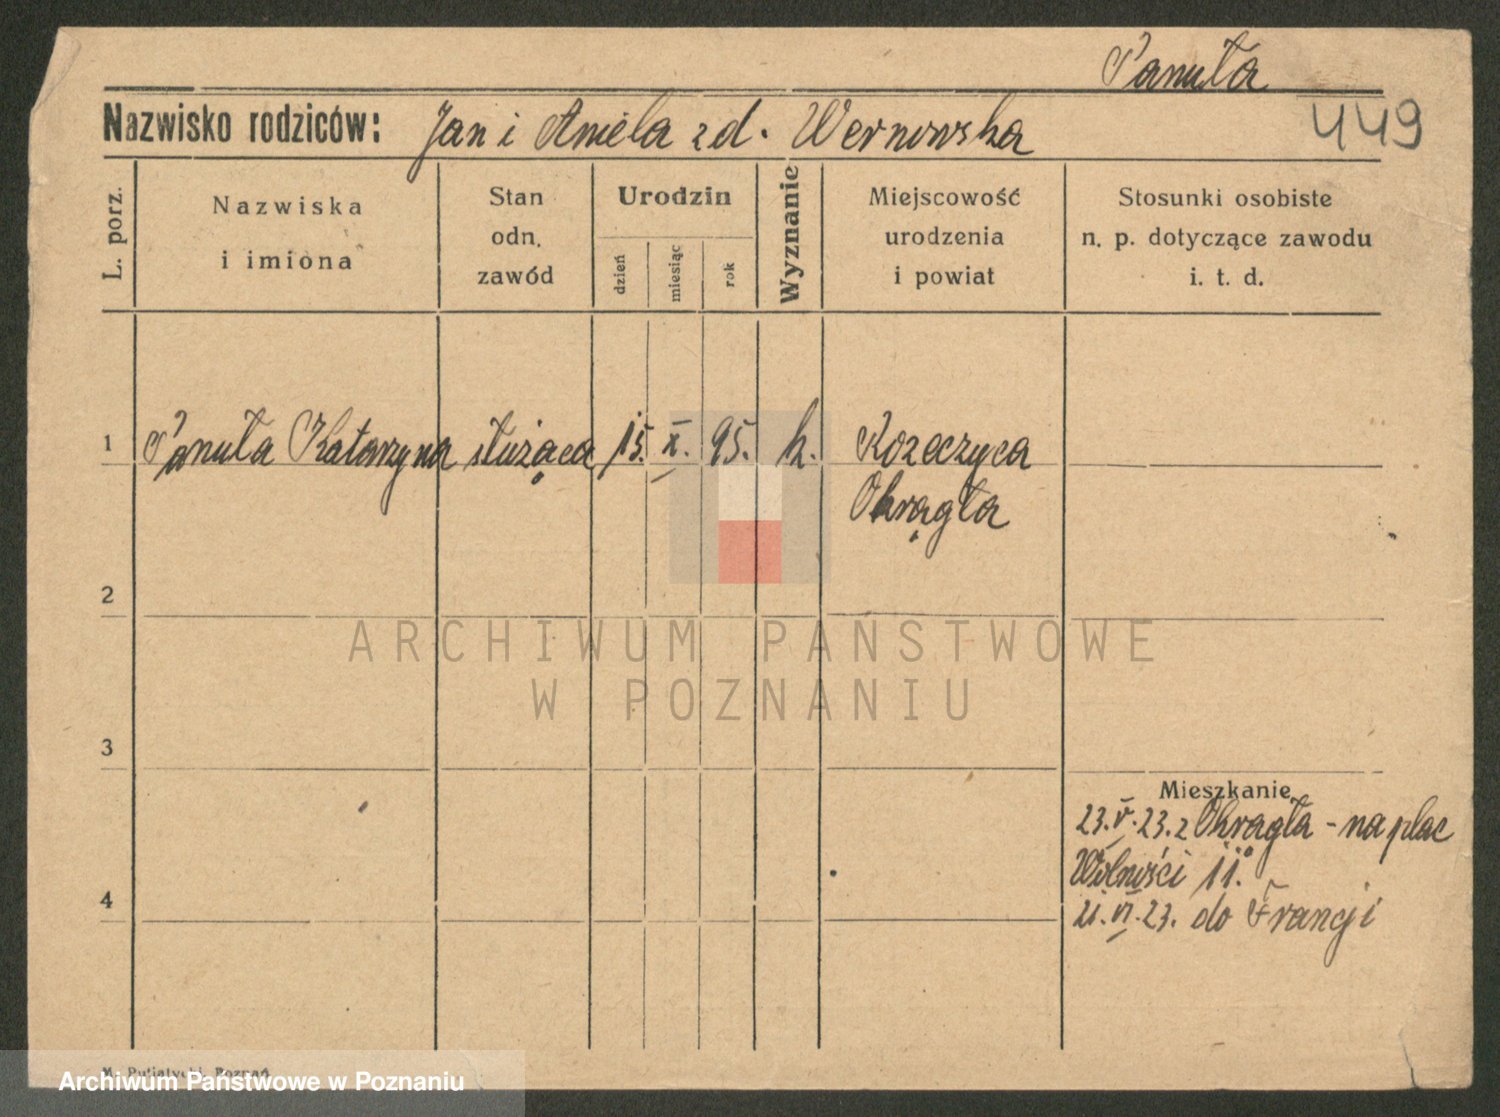 Panuła
449
Nazwisko rodziców: Jan i Aniela zd. Wernowska
L. porz.
Nazwiska
i imiona
Stan
odn.
zawód
Urodzin
dzień
miesiąc
rok
Wyznanie
Miejscowość
urodzenia
i powiat
Stosunki osobiste
n. p. dotyczące zawodu
i. t. d.
1 Panuła Katarzyna służąca 15. X. 95. k. Kozeczyca
Okrągła
2
3
4
Mieszkanie
23.V.23. z Okrągła - na plac
Wolności 11.
21.VI.23. do Francji
ARCHIWUM PAŃSTWOWE
W POZNANIU
M. Putiatycki, Poznań
Archiwum Państwowe w Poznaniu